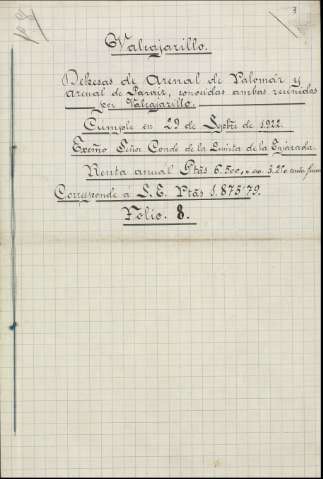 3
Valrajarillo.
Dehesas de Arenal de Palomár y
Arenal de Pavair, conocidas ambas reunidas
por Valrajarillo.
Cumple en 29 de Sptbre de 1.922.
Excmo Señor Conde de la Quinta de la Enjarada.
Renta anual Ptas 6.500,
Corresponde á S.E. Ptas 1.875'79.
Folio. 8.